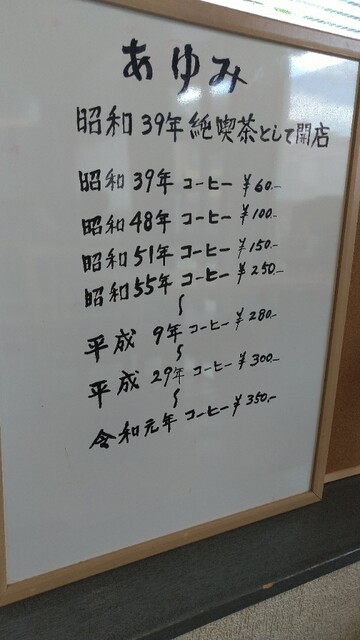 あゆみ
昭和39年 純喫茶として開店
昭和39年 コーヒー ¥60.-
昭和48年 コーヒー ¥100.-
昭和51年 コーヒー ¥150.-
昭和55年 コーヒー ¥250.-
〜
平成 9年 コーヒー ¥280.-
〜
平成 29年 コーヒー ¥300.-
〜
令和元年 コーヒー ¥350.-